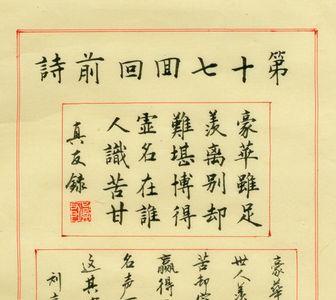 第十七囬回前詩
豪華雖足
羨离別却
難堪博得
虛名在誰
人識苦甘
真友錄
豪華
世人羨
苦却
贏得
名声
这其
刘